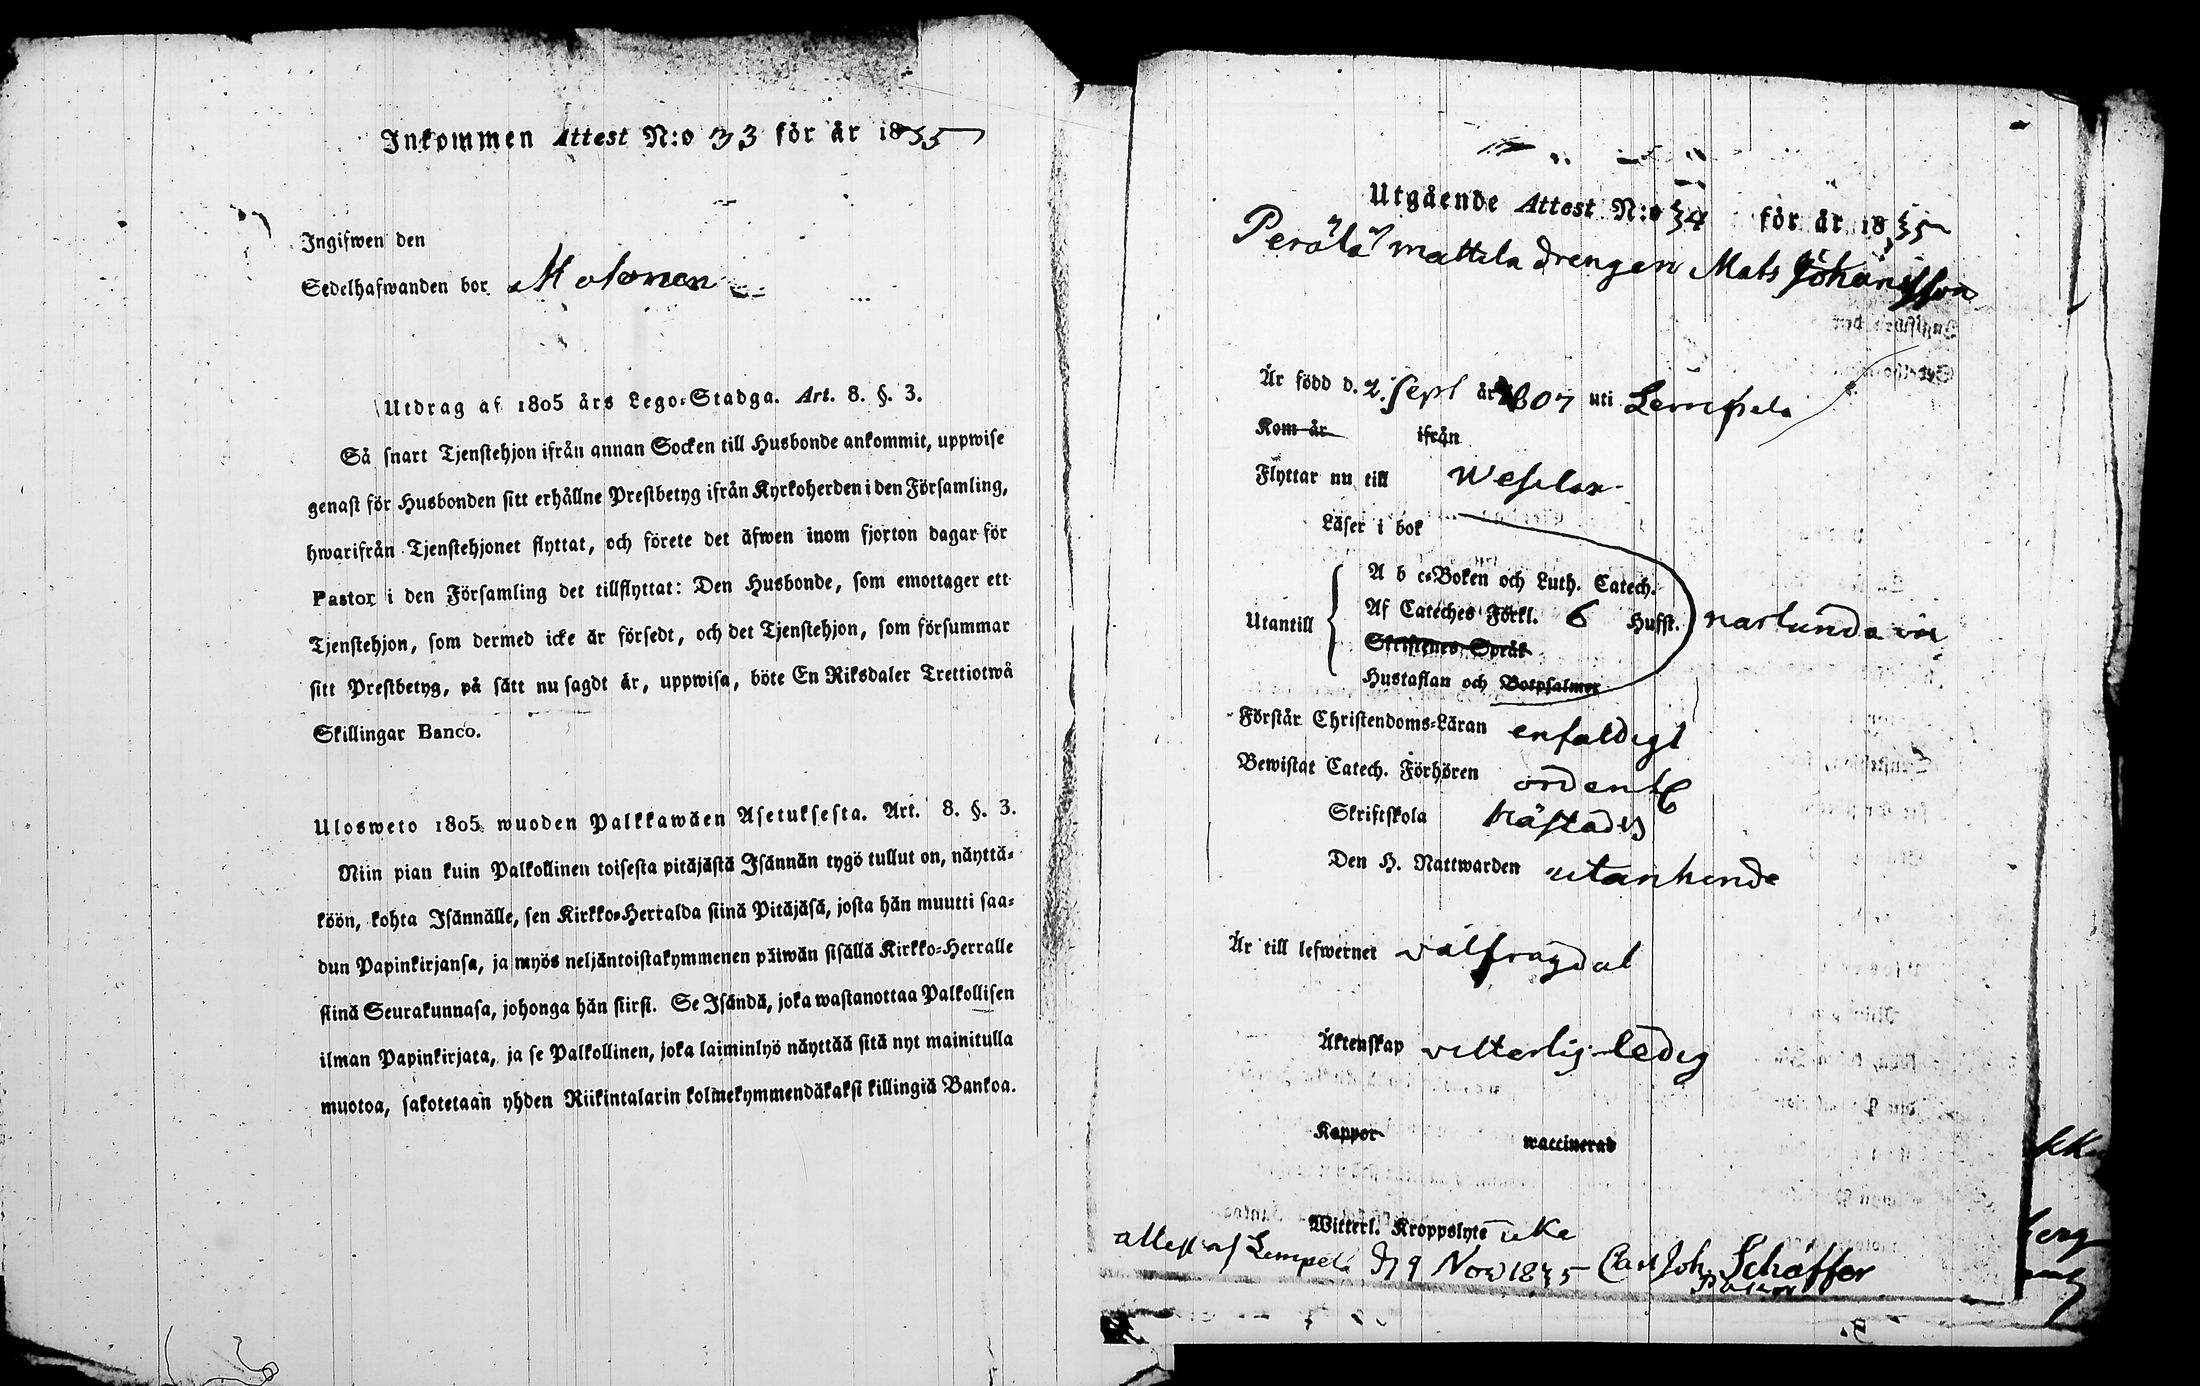 Inkommen Attest N:o 33 för år 1835
Ingifwen den
Sedelhafwanden bor Molonen
Utdrag af 1805 års Lego-Stadga. Art. 8. §. 3.
Så snart Tjenstehjon ifrån annan Socken till Husbonde ankommit, uppwise
genast för Husbonden sitt erhållne Prestbetyg ifrån Kyrkoherden i den Församling,
hwarifrån Tjenstehjonet flyttat, och förete det äfwen inom fjorton dagar för
Pastor i den Församling det tillflyttat: Den Husbonde, som emottager ett
Tjenstehjon, som dermed icke är försedt, och det Tjenstehjon, som försummar
sitt Prestbetyg, på sätt nu sagdt är, uppwisa, böte En Riksdaler Trettiotwå
Skillingar Banco.
Ulosweto 1805 wuoden Palkkawäen Asetuksesta. Art. 8. §. 3.
Niin pian kuin Palkollinen toisesta pitäjästä Isännän tygö tullut on, näyttä-
köön, kohta Isännälle, sen Kirkko-Herralda siinä Pitäjäsä, josta hän muutti saa-
dun Papinkirjansa, ja myös neljäntoistakymmenen päiwän sisällä Kirkko-Herralle
siinä Seurakunnasa, johonga hän siirsi. Se Isändä, joka wastanottaa Palkollisen
ilman Papinkirjata, ja se Palkollinen, joka laiminlyö näyttää sitä nyt mainitulla
muotoa, sakotetaan yhden Riikintalarin kolmekymmendäkaksi killingiä Bankoa.
Utgående Attest N:o 34 för år 1835
Perälä mattila drengen Mats Johansson
Är född d. 2. Sept år 1807 uti Lempela
Kom år ifrån
Flyttar nu till Wesilax
Läser i bok
Utantill
A b c-Boken och Luth. Catech.
Af Cateches Förkl. 6 Hufst.
Skriftenes Språk
Hustaflan och Botpsalmer
Förstår Christendoms-Läran enfaldigt
Bewistat Catech. Förhören ordentl
Skriftskola
Den H. Nattwarden
Är till lefwernet välfrägdad
Äktenskap vitterlig ledig
Kappor waccinerad
Witterl. Kroppslyte icke
attest af Lempelä d 9 Nov 1835 Carl Joh. Schäffer
Pastor